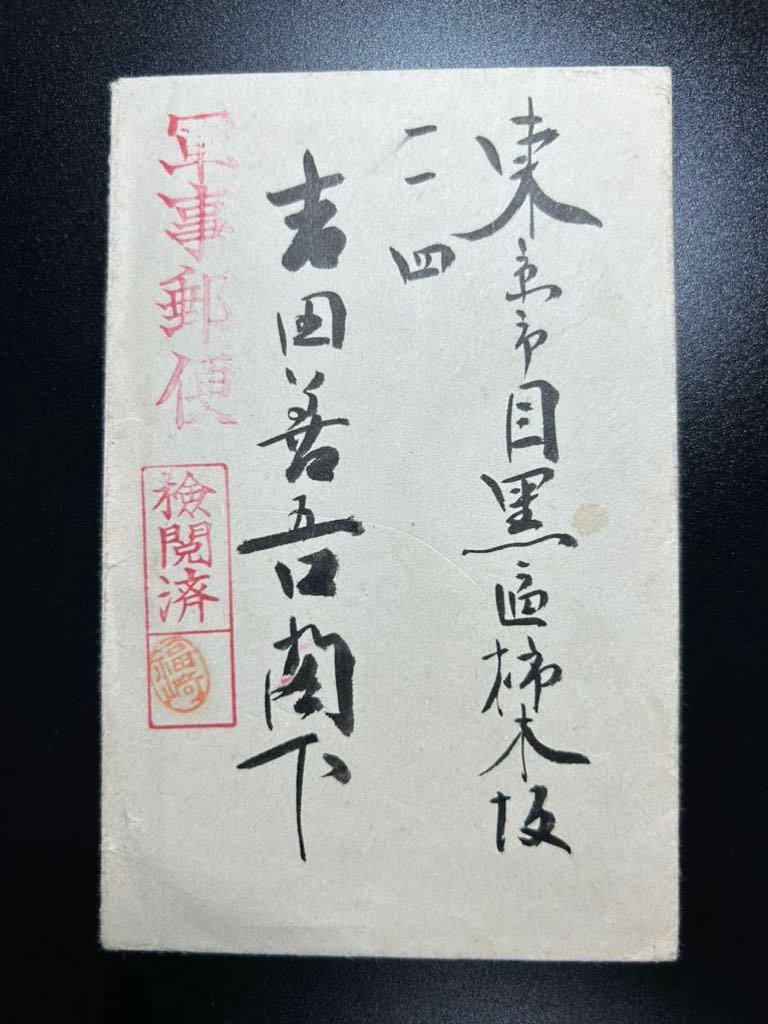 東京市目黒區柿木坂
二一四
吉田善吾閣下
軍事郵便
檢閲済
福崎